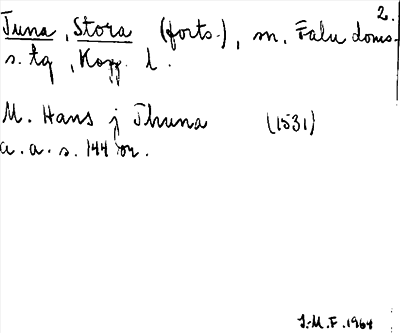 2.
Tuna, Stora (forts.), m. Falu doms-
s. tg, Kopp. l.
M. Hans j Thuna (1531)
a. a. s. 144 or.
J.M.F. 1964